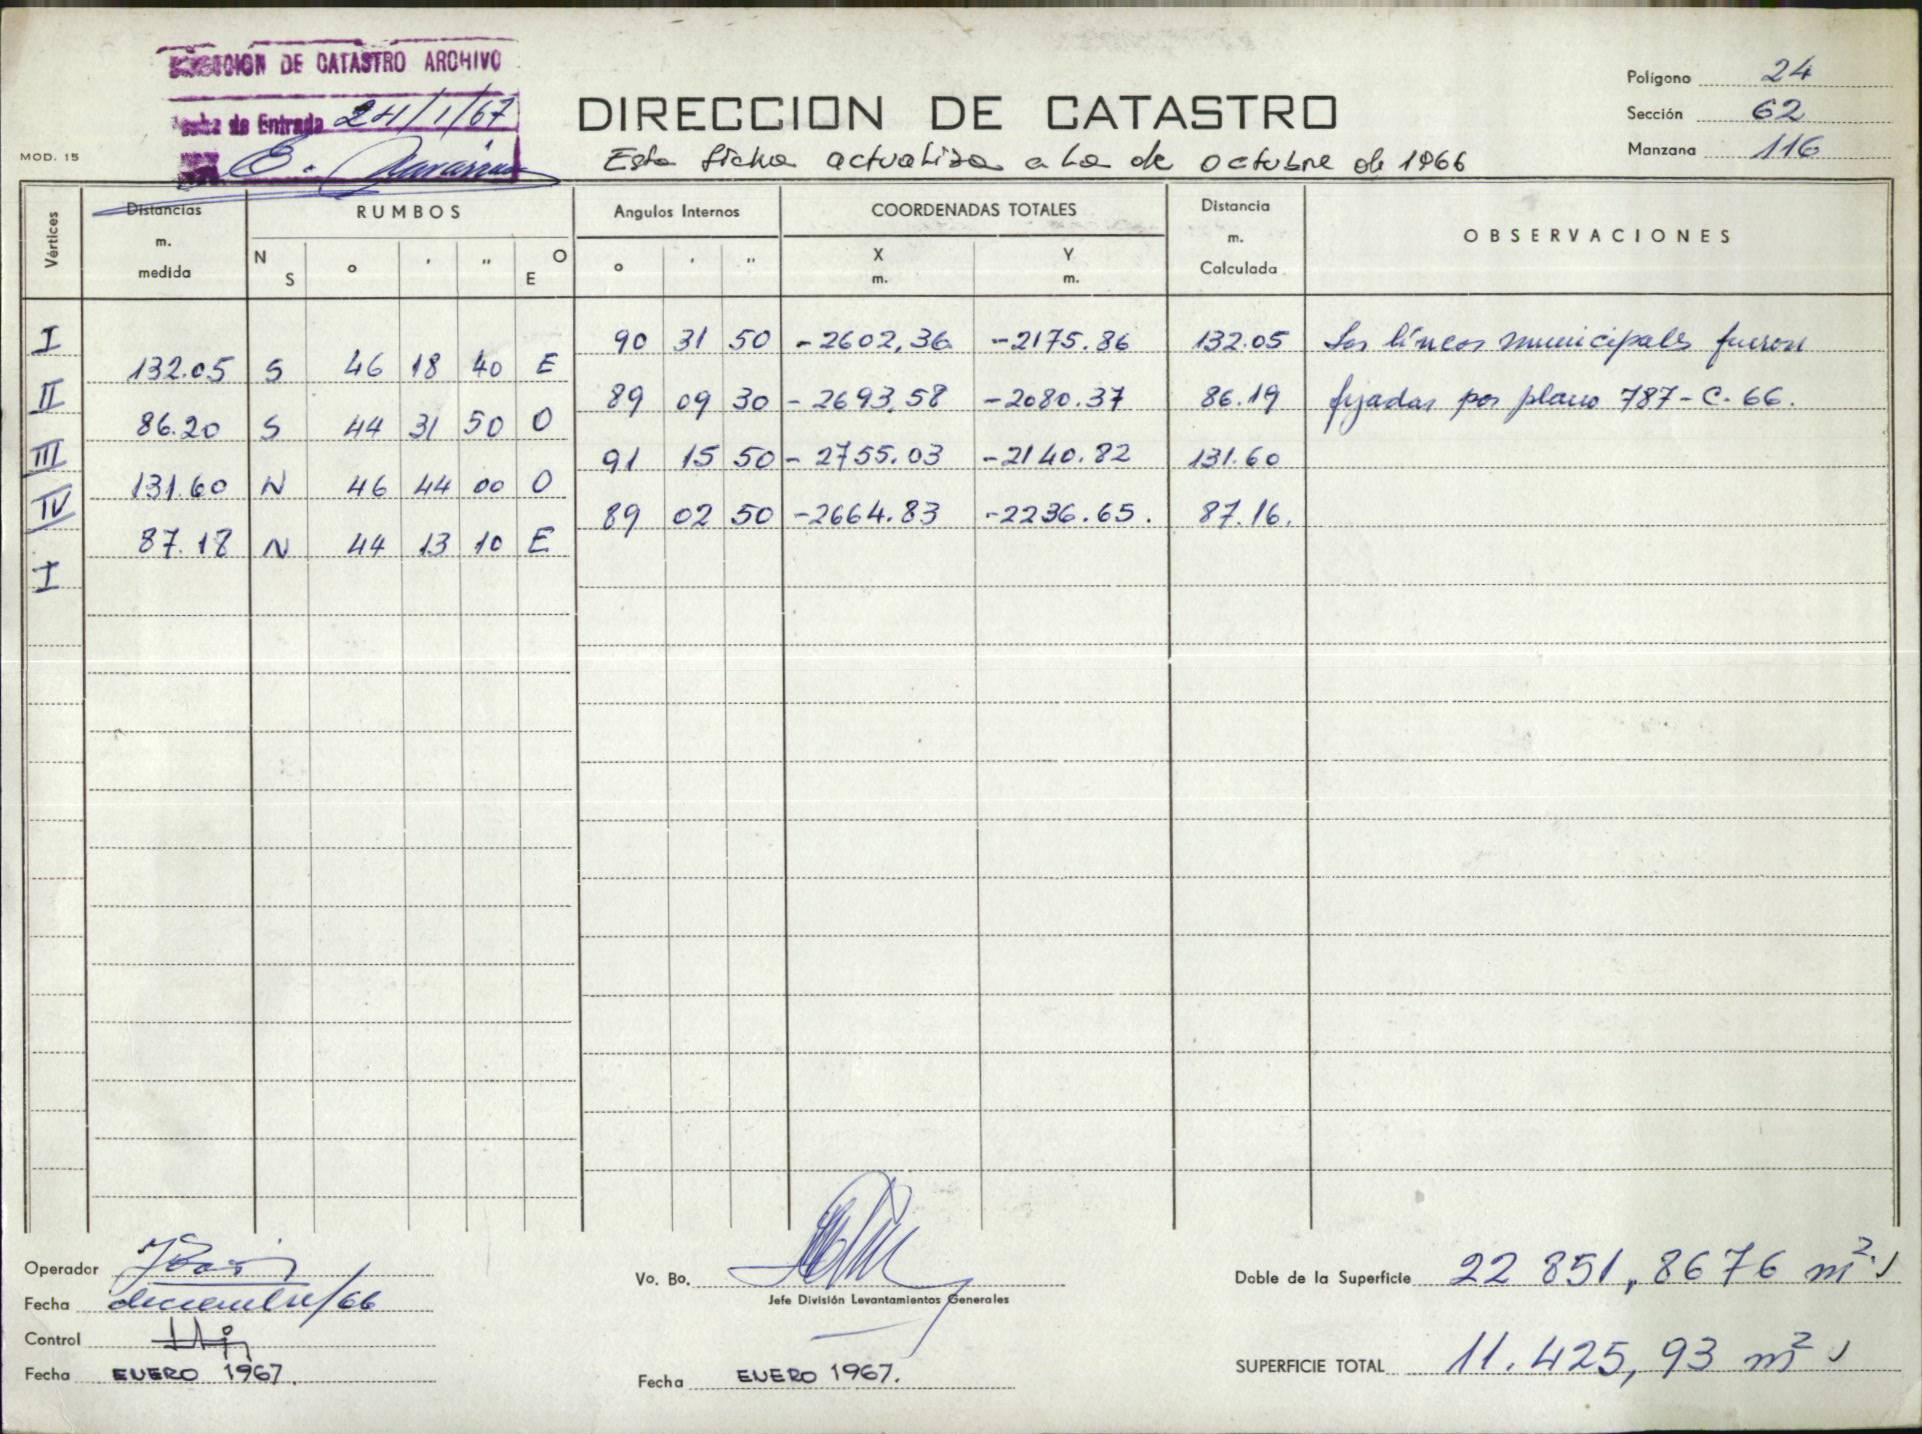 DE CATASTRO ARCHIVO
de Entrada 24/1/67
E.
MOD. 15
DIRECCION DE CATASTRO
Esta ficha actualiza a la de octubre de 1966
Polígono 24
Sección 62
Manzana 116
Vértices
Distancias
m.
medida
RUMBOS
N S ° ' '' O E
Angulos Internos
° ' ''
COORDENADAS TOTALES
X m.
Y m.
Distancia
m.
Calculada
OBSERVACIONES
I 90 31 50 -2602,36 -2175.86 132.05 Las líneas municipales fueron
132.05 S 46 18 40 E
II 89 09 30 -2693,58 -2080.37 86.19 fijadas por plano 787-C-66.
86.20 S 44 31 50 O
III 91 15 50 -2755.03 -2140.82 131.60
131.60 N 46 44 00 O
IV 89 02 50 -2664.83 -2236.65. 87.16.
87.18 N 44 13 10 E
I
Operador
Fecha diciembre/66
Control
Fecha ENERO 1967.
Vo. Bo.
Jefe División Levantamientos Generales
Fecha ENERO 1967.
Doble de la Superficie 22 851,8676 m².
SUPERFICIE TOTAL 11.425,93 m²